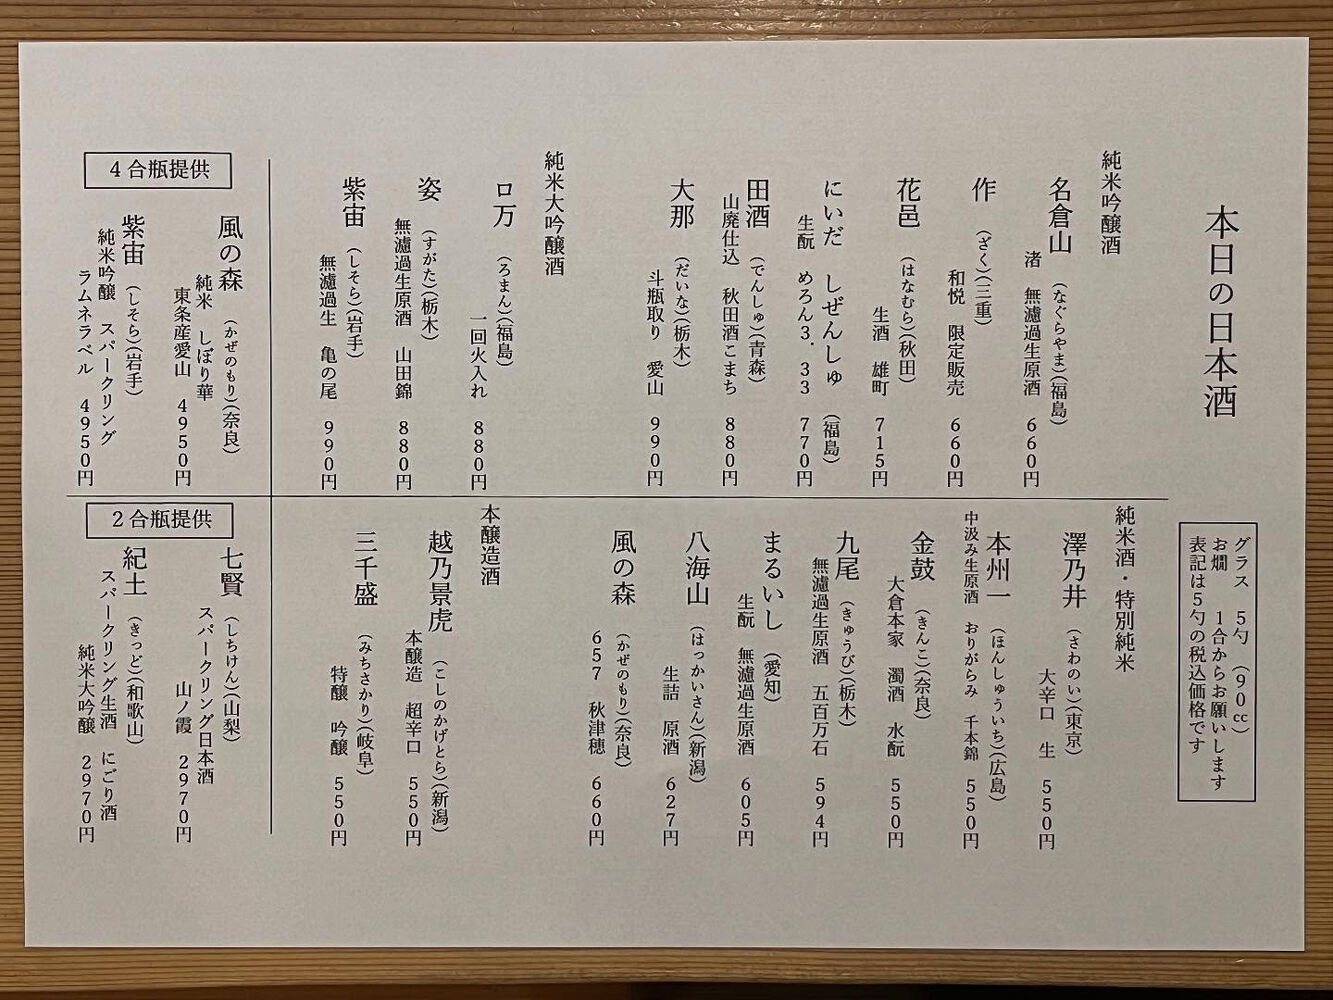 本日の日本酒
グラス　５勺　（９０㏄）
お燗　１合からお願いします
表記は５勺の税込価格です
純米吟醸酒
名倉山　（なぐらやま）（福島）
渚　無濾過生原酒　６６０円
作　（ざく）（三重）
和悦　限定販売　６６０円
花邑　（はなむら）（秋田）
生酒　雄町　７１５円
にいだ　しぜんしゅ　（福島）
生酛　めろん３．３３　７７０円
田酒　（でんしゅ）（青森）
山廃仕込　秋田酒こまち　８８０円
大那　（だいな）（栃木）
斗瓶取り　愛山　９９０円
純米大吟醸酒
ロ万　（ろまん）（福島）
一回火入れ　８８０円
姿　（すがた）（栃木）
無濾過生原酒　山田錦　８８０円
紫宙　（しそら）（岩手）
無濾過生　亀の尾　９９０円
純米酒・特別純米
澤乃井　（さわのい）（東京）
大辛口　生　５５０円
本州一　（ほんしゅういち）（広島）
中汲み生原酒　おりがらみ　千本錦　５５０円
金鼓　（きんこ）（奈良）
大倉本家　濁酒　水酛　５５０円
九尾　（きゅうび）（栃木）
無濾過生原酒　五百万石　５９４円
まるいし　（愛知）
生酛　無濾過生原酒　６０５円
八海山　（はっかいさん）（新潟）
生詰　原酒　６２７円
風の森　（かぜのもり）（奈良）
６５７　秋津穂　６６０円
本醸造酒
越乃景虎　（こしのかげとら）（新潟）
本醸造　超辛口　５５０円
三千盛　（みちさかり）（岐阜）
特醸　吟醸　５５０円
４合瓶提供
風の森　（かぜのもり）（奈良）
純米　しぼり華
東条産愛山　４９５０円
紫宙　（しそら）（岩手）
純米吟醸　スパークリング
ラムネラベル　４９５０円
２合瓶提供
七賢　（しちけん）（山梨）
スパークリング日本酒
山ノ霞　２９７０円
紀土　（きっど）（和歌山）
スパークリング生酒　にごり酒
純米大吟醸　２９７０円